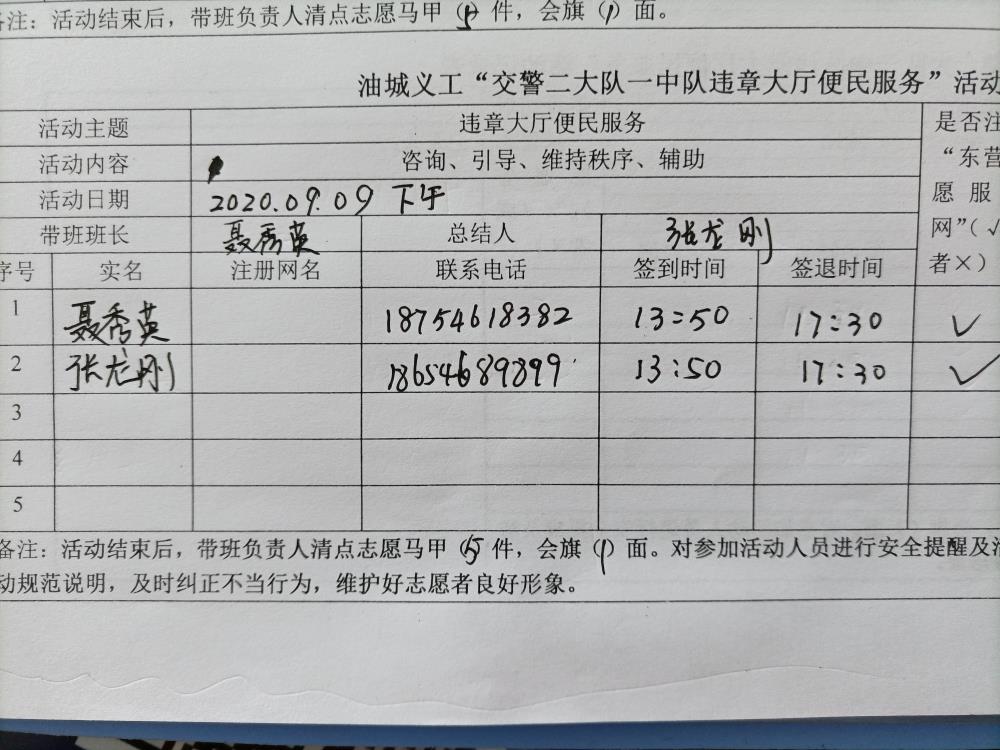 备注：活动结束后，带班负责人清点志愿马甲（5）件，会旗（1）面。
油城义工“交警二大队一中队违章大厅便民服务”活动
活动主题 违章大厅便民服务 是否注
活动内容 咨询、引导、维持秩序、辅助 “东营
活动日期 2020.09.09 下午 愿服
带班班长 聂秀英 总结人 张龙刚 网”（√
序号 实名 注册网名 联系电话 签到时间 签退时间 者×）
1 聂秀英 18754618382 13:50 17:30 √
2 张龙刚 18654689899 13:50 17:30 √
3
4
5
备注：活动结束后，带班负责人清点志愿马甲（5）件，会旗（1）面。对参加活动人员进行安全提醒及活
动规范说明，及时纠正不当行为，维护好志愿者良好形象。